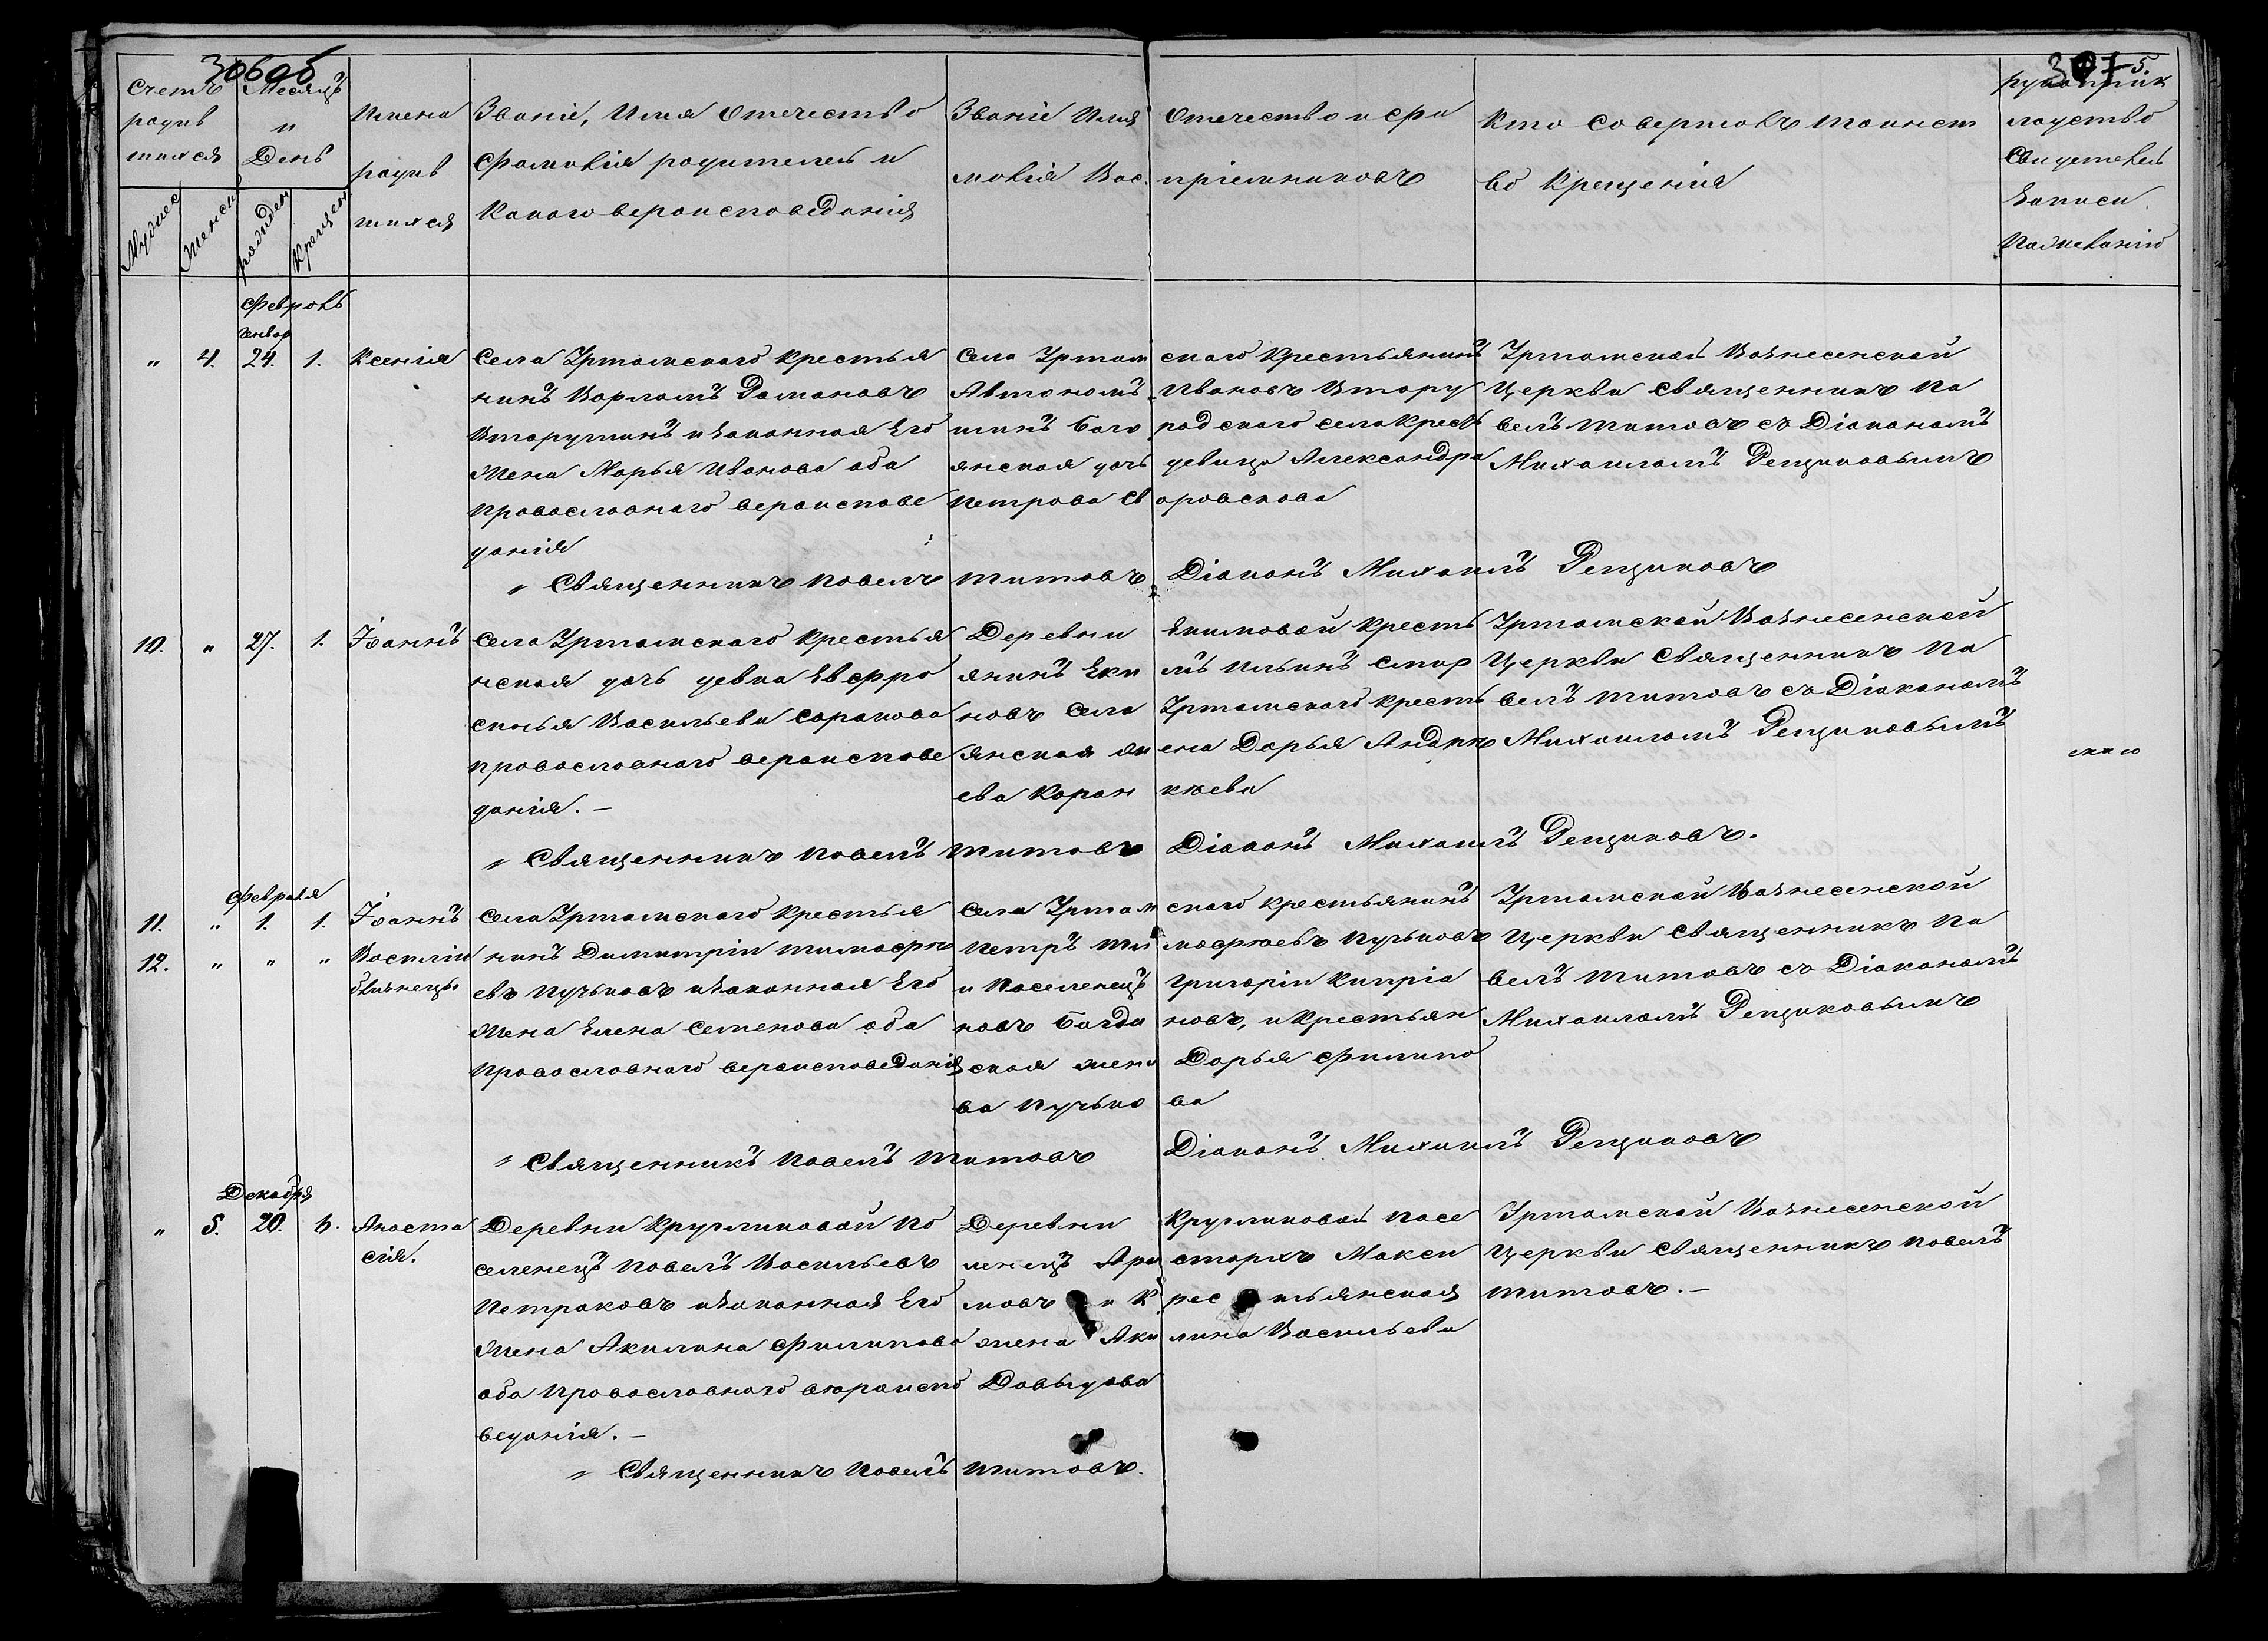 306 об
307 5.
Счетъ родив шихся
Мужес
Женск
Месяцъ и День
рожден
Крещен
Имена родив шихся
Званіе, Имя Отечество
Фамилія родителей и
Какого вероисповеданія
Званіе Имя Отечество и фа
милія Вос пріемниковъ
Кто совершалъ таинст
во Крещенія
рукоприк
ладство
Свидетелей
Записи
По желанію
Февраль
Генвар
" 4. 24. 1. Ксенія
Села Уртамского крестья
нинъ Варламъ Романовъ
Вторушинъ и законная Его
Жена Марья Иванова оба
православнаго вероиспове
данія
Села Уртам ского Крестьянинъ
Автономъ Ивановъ Втору
шинъ Бого родского села Кресть
янская дочь девица Александра
Петрова Св аровскова
Уртамской Вознесенской
Церкви священникъ Па
велъ Титовъ съ Діакономъ
Михаиломъ Рещиковымъ
" Священникъ Павелъ Титовъ Діаконъ Михаилъ Рещиковъ
10. " 27. 1. Іоаннъ
Села Уртамского Крестья
нская дочь девка Евфро
синья Васильева Саракова
православнаго вероиспове
данія. —
Деревни Екимовой кресть
янинъ Еки мъ Ильинъ Смир
новъ Села Уртамского кресть
янская же на Дарья Андри
ева Коран кеева
Уртамской Вознесенской
Церкви священникъ Па
велъ Титовъ съ Діакономъ
Михаиломъ Рещиковымъ
" Священникъ Павелъ Титовъ Діаконъ Михаилъ Рещиковъ.
Февраля
11. " 1. 1. Іоаннъ
12. " " " Василій
близнецы
Села Уртамского крестья
нинъ Димитрій Тимофе
евъ Пучковъ и законная Его
Жена Елена Семенова оба
Православнаго вероисповеданія
Села Уртам ского крестьянинъ
Петръ Ти мофеевъ Пучьковъ
и Поселенецъ Григорій Кипріа
новъ Богда новъ, и Крестьян
ская жена Дарья Филипо
ва Пучько ва
Уртамской Вознесенской
Церкви священникъ Па
велъ Титовъ съ Діакономъ
Михаиломъ Рещиковымъ
" Священникъ Павелъ Титовъ Діаконъ Михаилъ Рещиковъ
Декабря
" 5. 20. Анаста
сія.
Деревни Кругликовой по
селенецъ Павелъ Васильевъ
Петраковъ и законная Его
Жена Акилина Филипова
оба Православнаго вероиспо
веданія. —
Деревни Кругликовой посе
ленецъ Ари стархъ Макси
мовъ и К рес тьянская
жена Аки лина Васильева
Давыдова
Уртамской Вознесенской
Церкви священникъ Павелъ
Титовъ. —
" Священникъ Павелъ Титовъ.